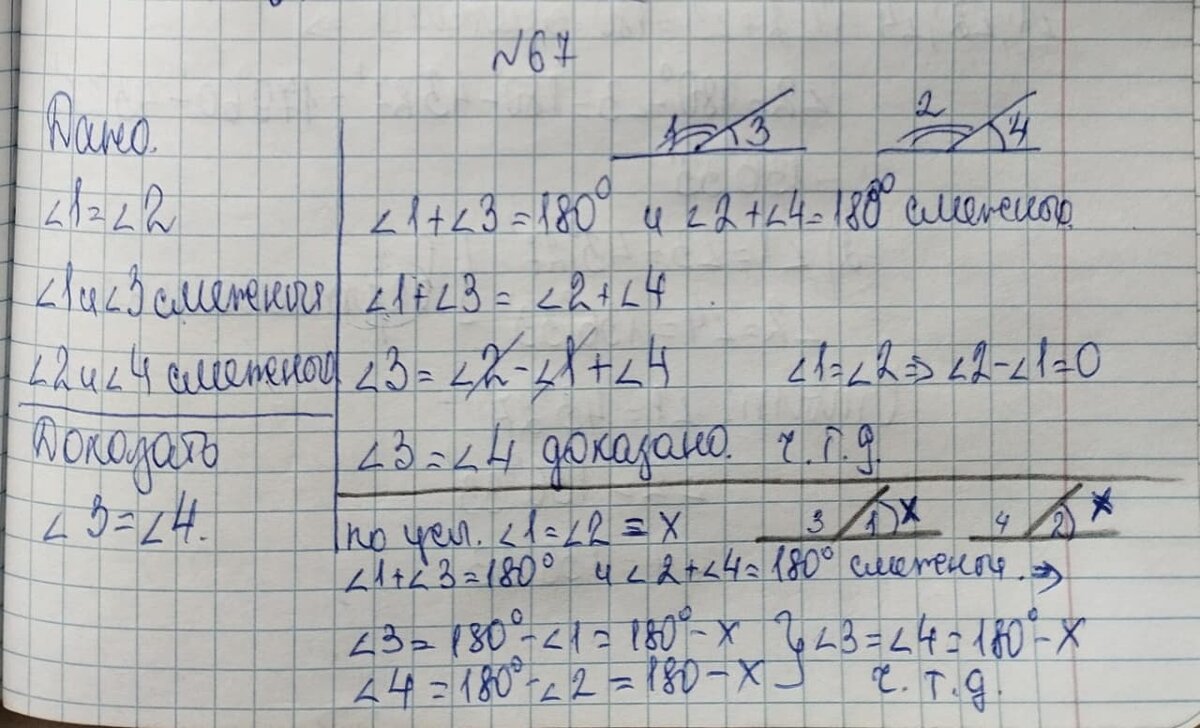 №67
Дано.
∠1=∠2
∠1 и ∠3 смежные
∠2 и ∠4 смежные
Доказать
∠3=∠4.
1 3 2 4
∠1+∠3=180° и ∠2+∠4=180° смежные.
∠1+∠3=∠2+∠4
∠3=∠2-∠1+∠4 ∠1=∠2⇒∠2-∠1=0
∠3=∠4 доказано. ч.т.д.
по усл. ∠1=∠2=x 3 1 x 4 2 x
∠1+∠3=180° и ∠2+∠4=180° смежные.⇒
∠3=180°-∠1=180°-x } ∠3=∠4=180°-x
∠4=180°-∠2=180-x ч.т.д.